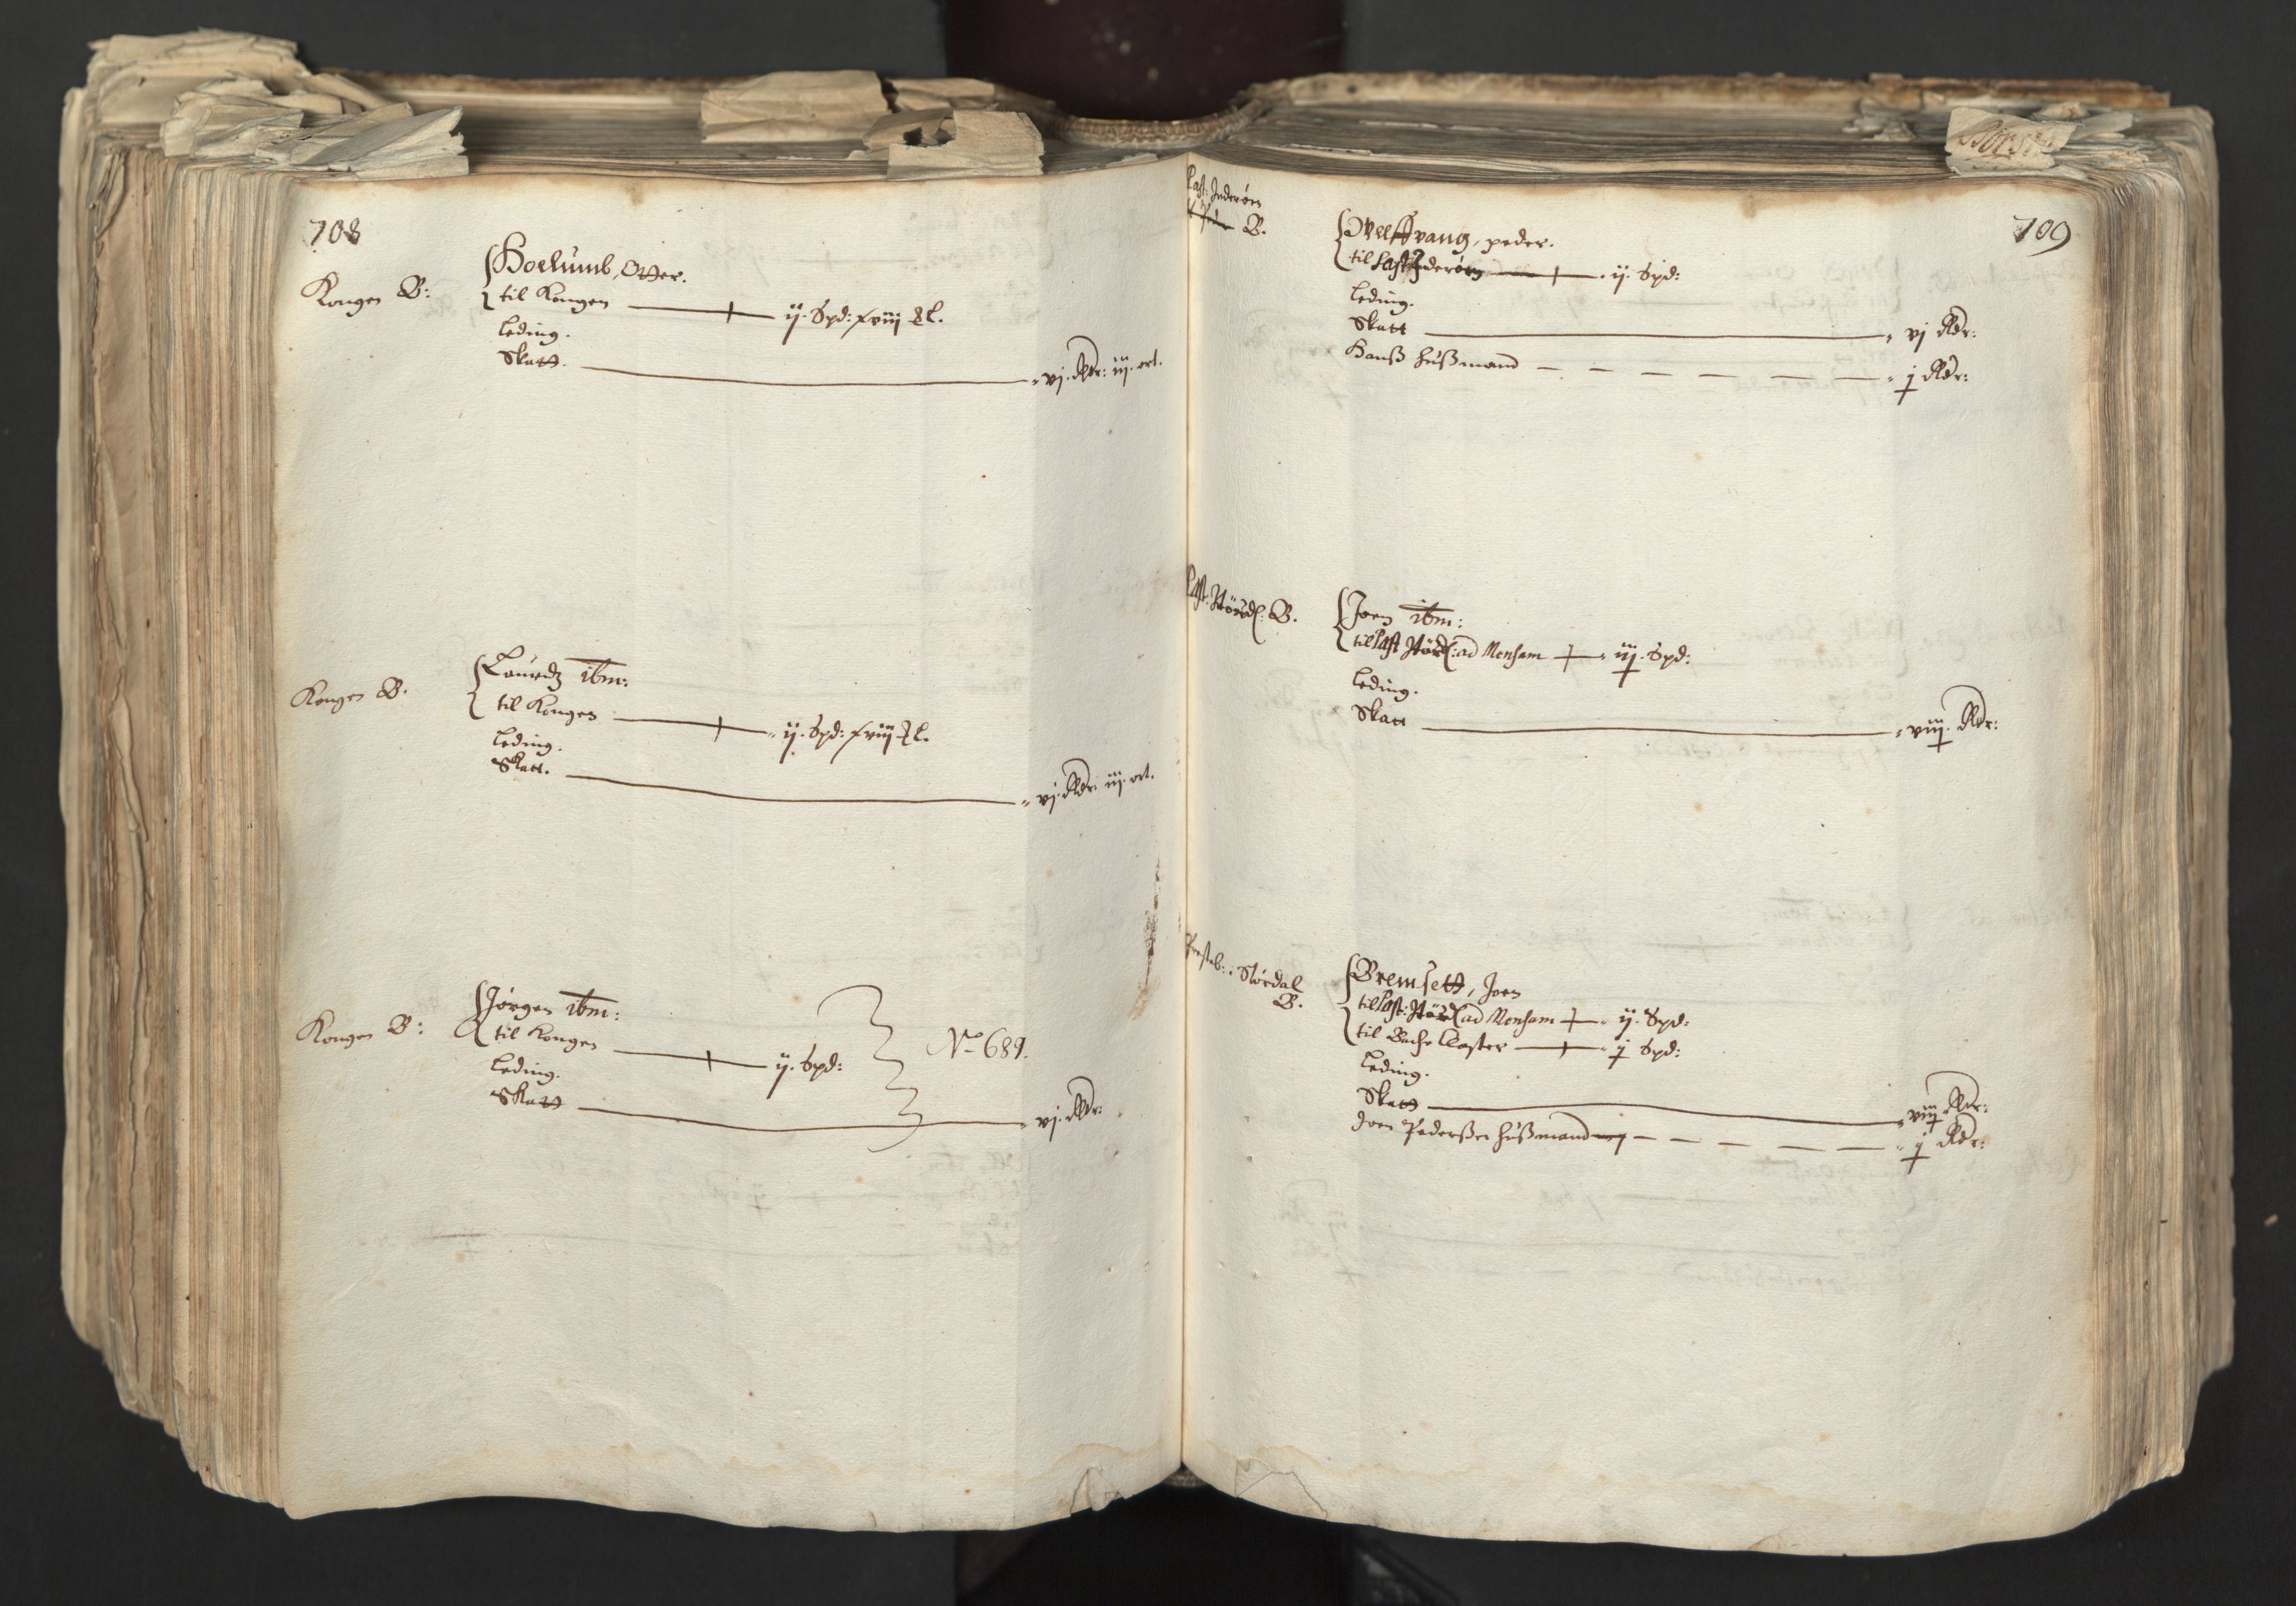 708
Kongen B:
Hoelumb, Otter.
til Kongen ij. Spd: xviij
Leding.
Skatt. vj. Rdr: iij. ort.
Kongen B.
Lauridz ibm:
til Kongen ij. Spd: xviij
Leding.
Skatt. vj. Rdr: iij. ort.
Kongen B:
Jørgen ibm:
til Kongen ij. Spd:
No 689.
Leding.
Skatt vj. Rdr:
709
Past: Inderøen
B.
Welffvang, peder.
til Past Inderøen ij. Spd:
Leding.
Skatt vj Rdr:
Hanß hußmand j Rdr:
Past: Størdl: B.
Joen ibm:
til Past Størdl: ad Mensam iij. Spd:
Leding.
Skatt viij. Rdr:
Presteb: Størdal
B.
Bremsett, Joen
til Past: Størdl ad Mensam ij. Spd:
til Bache Closter j Spd:
Leding.
Skatt viij Rdr:
Joen Pederßen hußmand j Rdr: